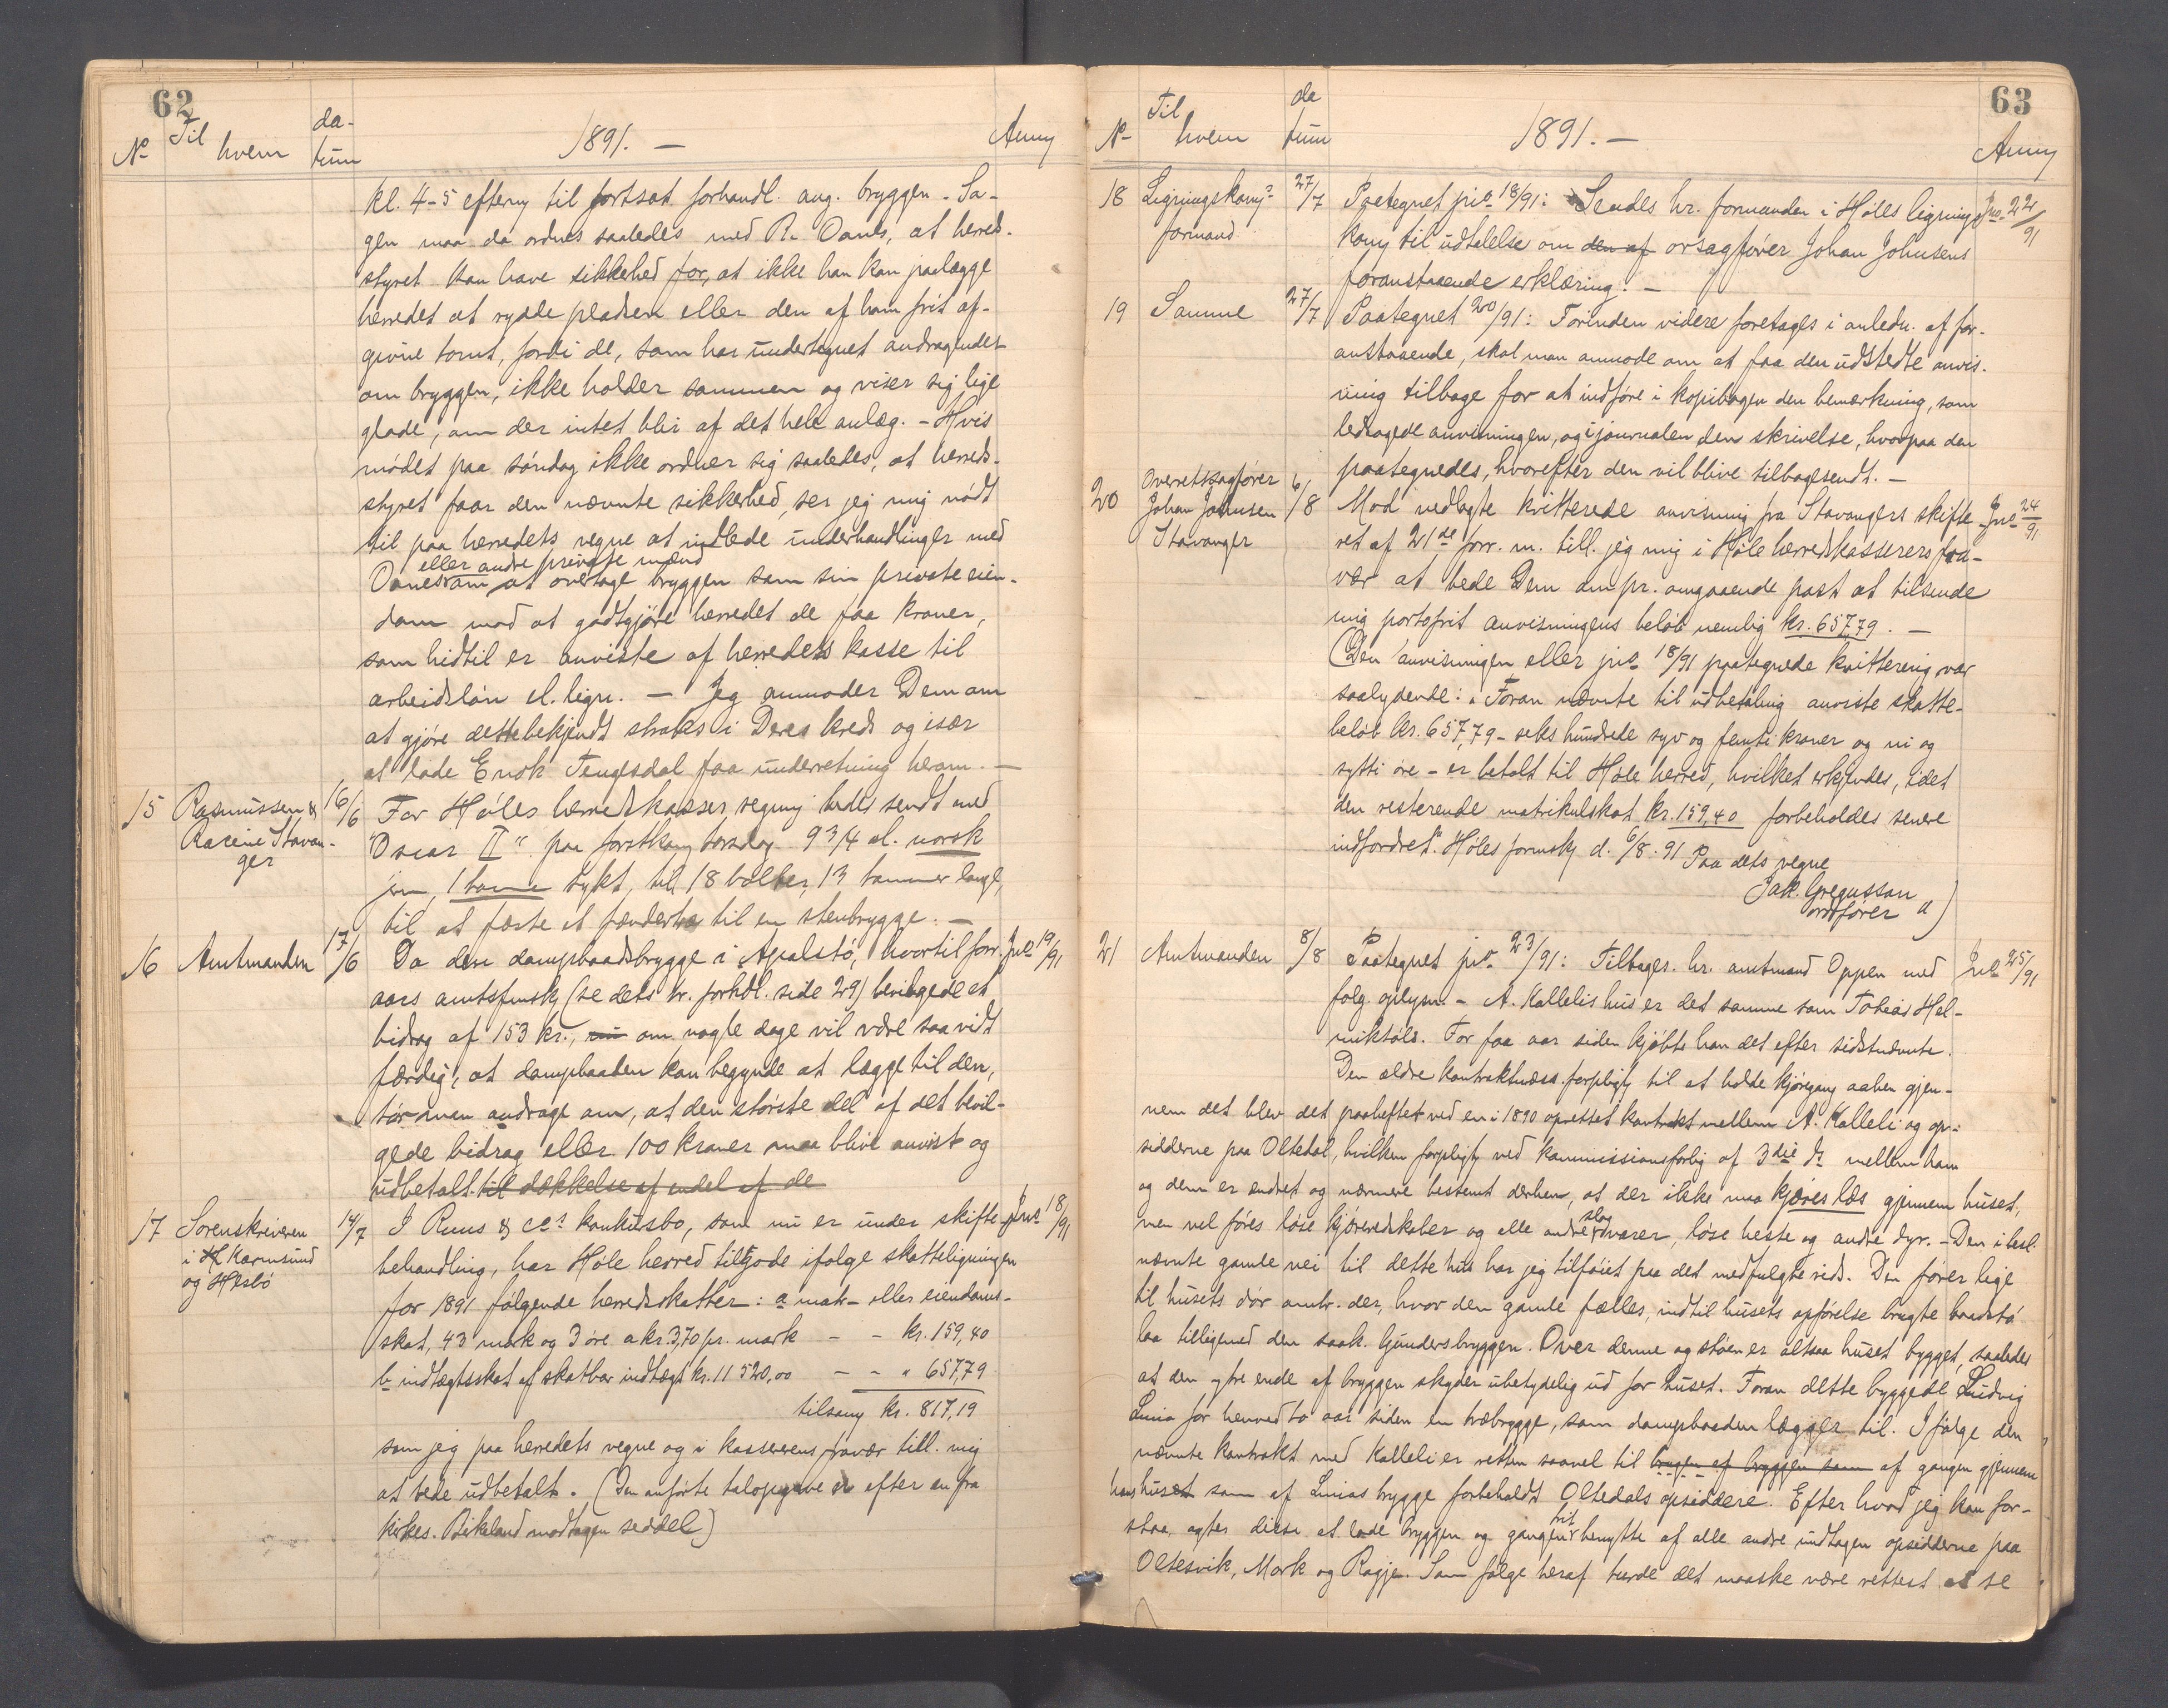 62
No Til hvem da-tum 1891. — Anm
kl. 4-5 efterm til fortsat forhandl. ang. bryggen. Sa-
gen maa da ordnes saaledes med R. Oanes, at herred-
styret kan have sikkerhed for, at ikke han kan paalægge
herredet at rydde pladsen eller den af ham frit af-
givne tomt, fordi de, som har undertegnet andragendet
om bryggen, ikke holder sammen og viser sig lige
glade, om der intet blir af det hele anlæg. - Hvis
mødet paa søndag ikke ordner sig saaledes, at herreds-
styret faar den nævnte sikkerhed, ser jeg mig nødt
til paa herredets vegne at indlede underhandlinger med
eller andre private mænd
Oanes om at overtage bryggen som sin private eien-
dom mod at godtgjøre herredet de faa kroner,
som hidtil er anviste af herredets kasse til
arbeidsløn el. lign. — Jeg anmoder Dem om
at gjøre dette bekjendt straks i Deres kreds og især
at lade Enok Tengesdal faa underretning herom. —
15 Rasmussen & Racine Stavan-ger 16/6 For Høles herredskasses regning bedes sendt med
"Oscar II" paa førstkom torsdag 9 3/4 al. norsk
jern, 1 tomme tykt, til 18 bolter, 13 tommer lange,
til at fæste et fendertræ til en stenbrygge. —
16 Amtmanden 17/6 Da den dampbaadsbrygge i Apalstø, hvortil forr. Jno 19/91
aars amtsfmsk (se dets tr. forhdl. side 29) bevilgede et
bidrag af 153 kr., om nogle dage vil være saa vidt
færdig, at dampbaaden kan begynde at lægge til den,
tør man andrage om, at den største del af det bevil-
gede bidrag eller 100 kroner maa blive anvist og
udbetalt. til dækkelse af endel af de
17 Sorenskriveren i Karmsund og Hesbø 14/7 I Ruus & Co's konkursbo, som nu er under skifte- Jno 18/91
behandling, har Høle herred tilgode ifølge skatteligningen
for 1891 følgende herredsskatter: a matr- eller eiendoms-
skat, 43 mark og 3 øre a kr. 3,70 pr. mark — - kr. 159,40
b indtægtsskat af skatbar indtægt kr. 11 520,00 — - " 657,79
tilsam kr. 817,19
som jeg paa herredets vegne og i kassererens fravær till. mig
at bede udbetalt. (Den anførte talopgave er efter en fra
kirkes. Birkeland modtagen seddel)
63
No Til hvem da tum 1891. — Anm
18 Ligningskom. formand 27/7 Paategnet jno 18/91: Sendes hr. formanden i Høles lignings Jno 22/91
kom til udtalelse om den af orsagfører Johan Johnsens
foranstaaende erklæring. —
19 Samme 27/7 Paategnet 20/91: Forinden videre foretages i anledn. af for-
anstaaende, skal man anmode om at faa den udstedte anvis-
ning tilbage for at indføre i kopibogen den bemærkning, som
ledsagede anvisningen, og i journalen den skrivelse, hvorpaa den
paategnedes, hvorefter den vil blive tilbagesendt. —
20 Overretssagfører Johan Johnsen Stavanger 6/8 Mod vedlagte kvitterede anvisning fra Stavangers skifte- Jno 24/91
ret af 21de forr. m. till. jeg mig i Høle herredskasserers fra-
vær at bede Dem om pr. omgaaende post at tilsende
mig portofrit anvisningens beløb nemlig kr. 657,79. —
(Den anvisningen eller jno 18/91 paategnede kvittering var
saalydende: "Foran nævnte til udbetaling anviste skatte-
beløb kr. 657,79 - seks hundrede syv og femti kroner og ni og
sytti øre - er betalt til Høle herred, hvilket erkjendes, idet
den resterende matrikulskat kr. 159,40 forbeholdes senere
indfordret". Høles formsk d. 6/8. 91 Paa dets vegne
Jak. Gregussøn
ordfører ")
21 Amtmanden 8/8 Paategnet jno 23/91: Tilbages. hr. amtmand Oppen med Jno 25/91
følg. oplysn. - A. Kallelis hus er det samme som Tobias Hel-
mikstøls. For faa aar siden kjøbte han det efter sidstnævnte.
Den ældre kontraktmæss. forpligt til at holde kjøregang aaben gjen-
nem det blev det paaheftet ved en i 1890 oprettet kontrakt mellem A. Kalleli og op-
sidderne paa Oltedal, hvilken forpligt ved kommissionsforlig af 3die ds mellem ham
og dem er endret og nærmere bestemt derhen, at der ikke maa kjøres læs gjennem huset,
men vel føres løse kjøreredskaber og alle andre slag varer, løse heste og andre dyr. - Den i besl.
nævnte gamle vei til dette hus har jeg tilføiet paa det medfulgte rids. Den fører lige
til husets dør omtr. der, hvor den gamle fælles, indtil husets opførelse brugte baadstø
laa tilligemed den saak. Gundersbryggen. Over denne og støen er altsaa huset bygget, saaledes
at den ytre ende af bryggen skyder ubetydelig ud for huset. Foran dette byggede Ludvig
Lima for henved to aar siden en træbrygge, som dampbaaden lægger til. Ifølge den
nævnte kontrakt med Kalleli er retten saavel til brugen af bryggen som af gangen gjennem
hans huset som af Limas brygge forbeholdt Oltedals opsiddere. Efter hvad jeg kan for-
staa, agter disse at lade bryggen og gangen frit benytte af alle andre undtagen opsidderne paa
Oltesvik, Mork og Ragje. Som følge heraf turde det maaske være rettest at se